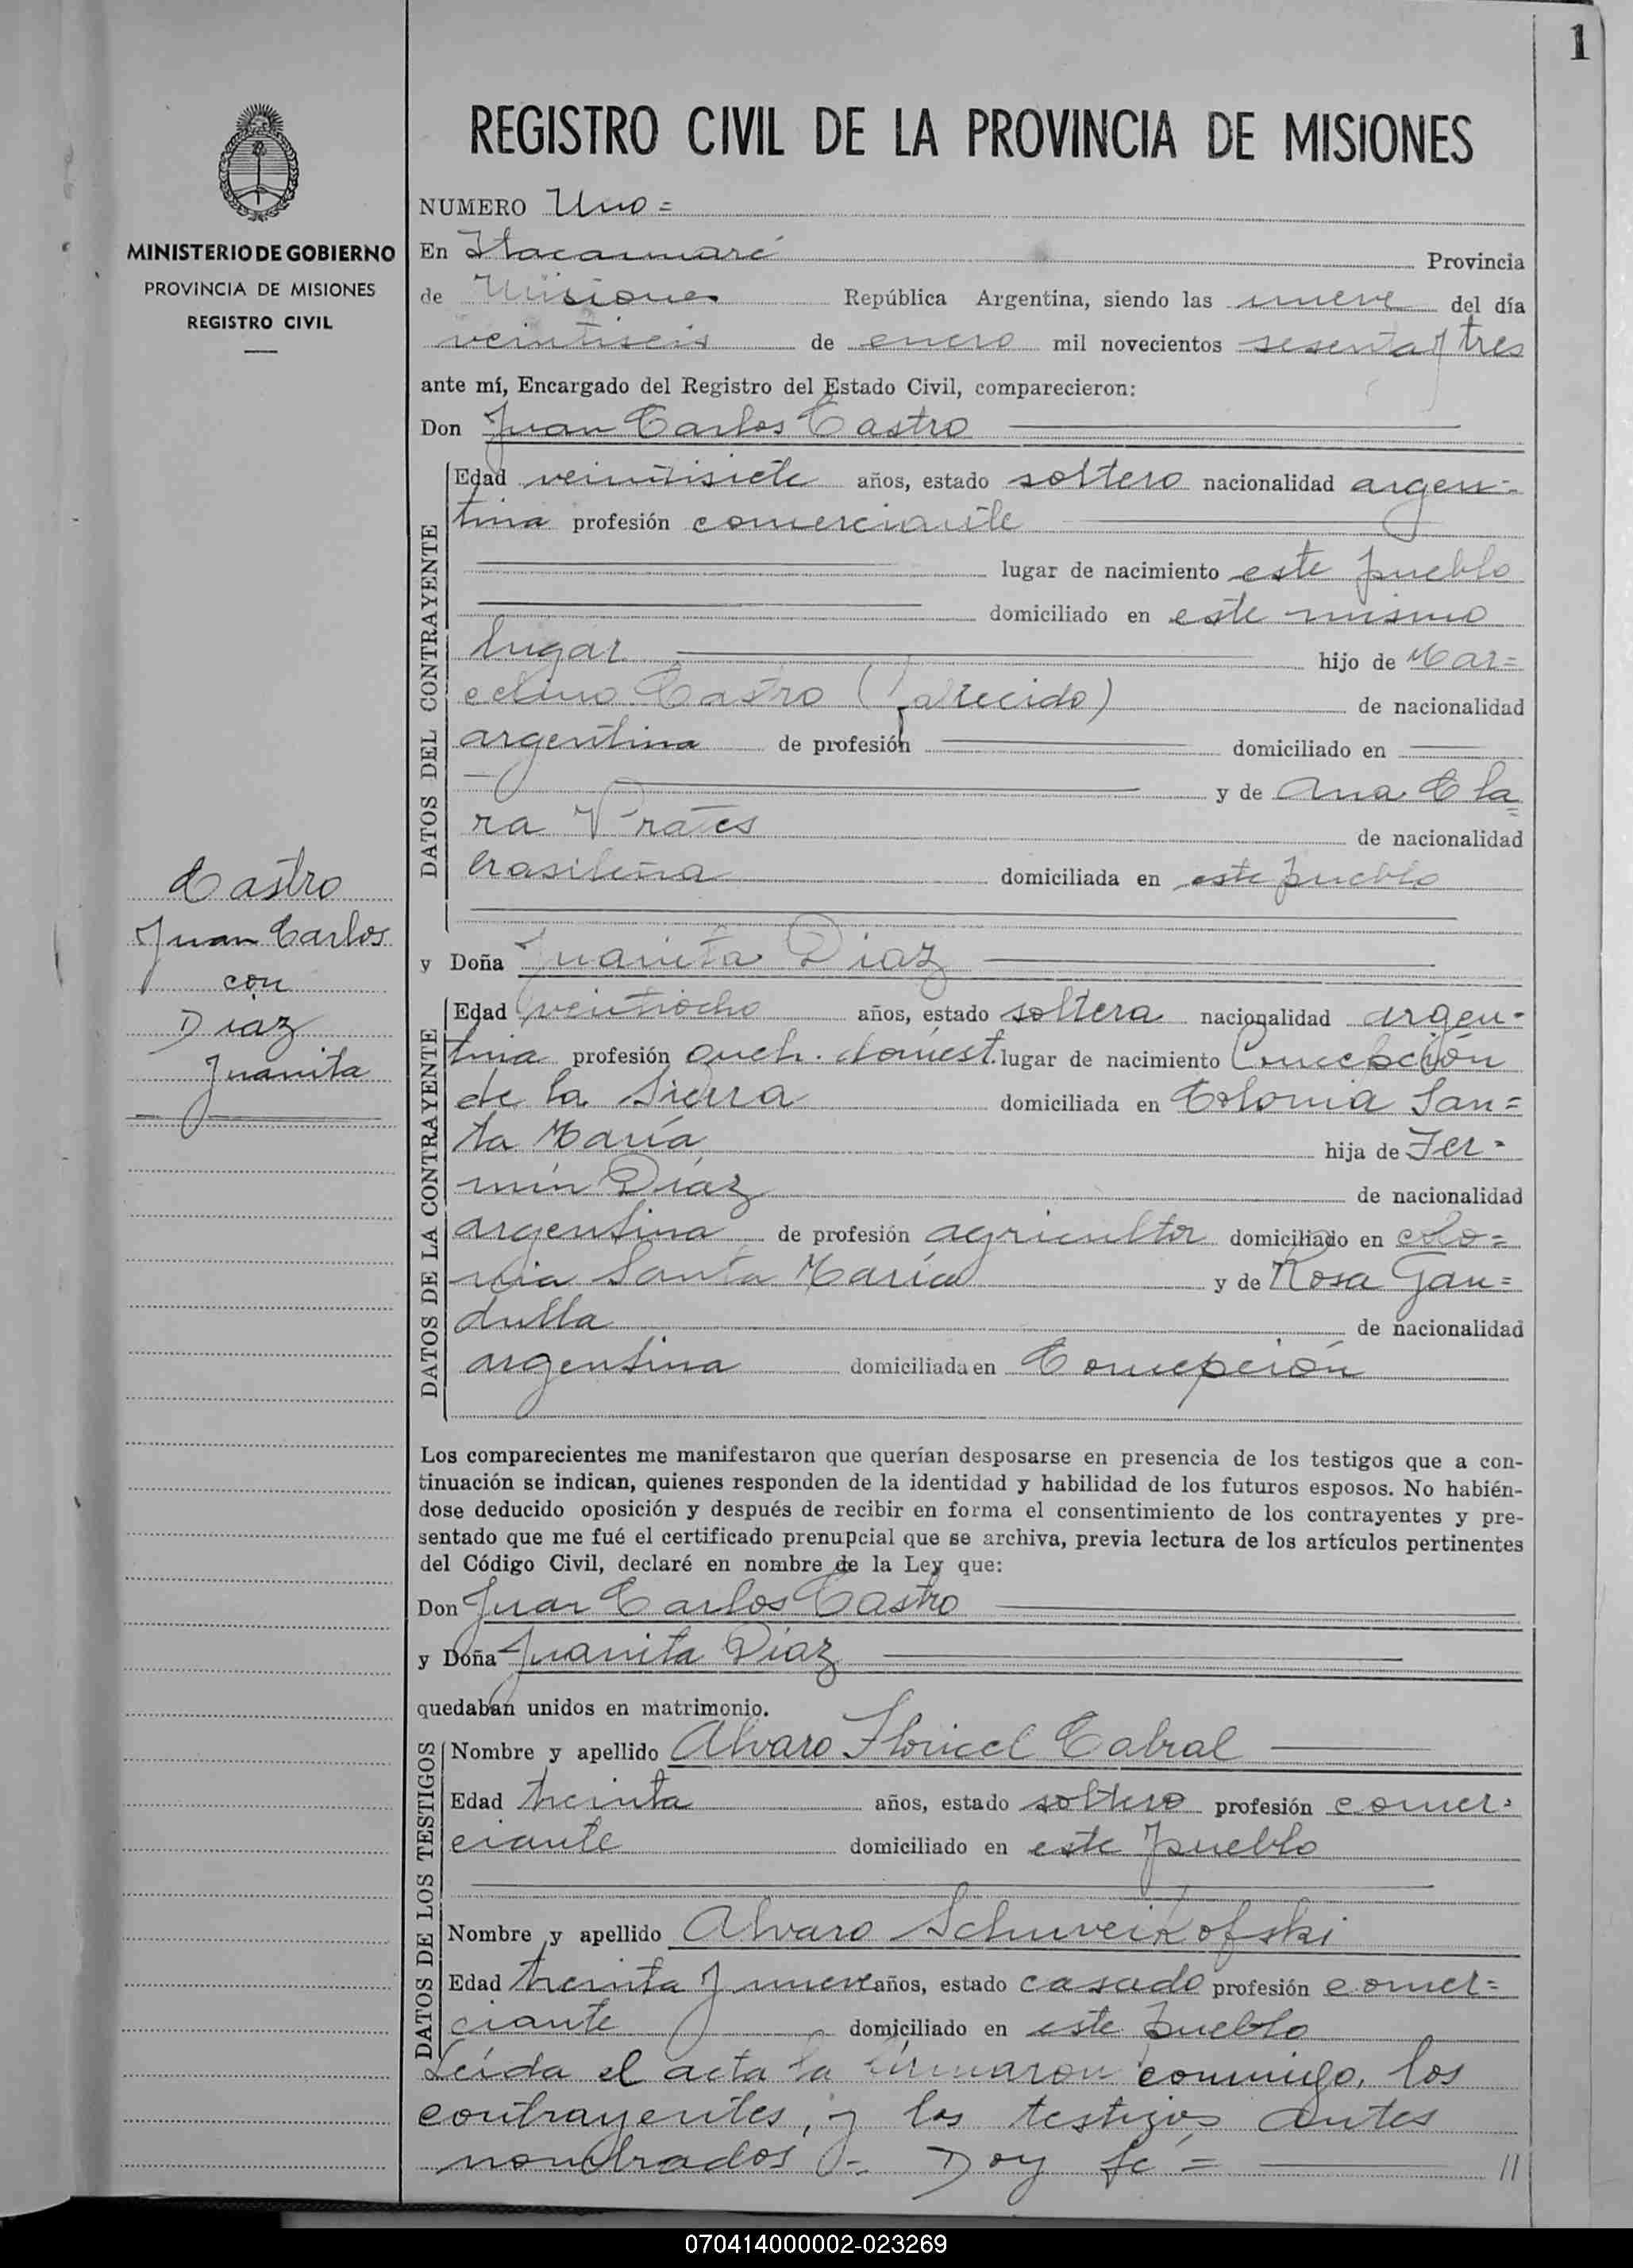 1
REGISTRO CIVIL DE LA PROVINCIA DE MISIONES
MINISTERIO DE GOBIERNO
PROVINCIA DE MISIONES
REGISTRO CIVIL
Castro
Juan Carlos
con
Diaz
Juanita
NUMERO Uno =
En Itacaruaré Provincia
de Misiones República Argentina, siendo las nueve del día
veintiseis de enero mil novecientos sesenta y tres
ante mí, Encargado del Registro del Estado Civil, comparecieron:
Don Juan Carlos Castro
DATOS DEL CONTRAYENTE
Edad veintisiete años, estado soltero nacionalidad argen=
tina profesión comerciante
lugar de nacimiento este pueblo
domiciliado en este mismo
lugar hijo de Mar=
celino Castro (fallecido) de nacionalidad
argentina de profesión domiciliado en
y de Ana Cla=
ra Prates de nacionalidad
brasileña domiciliada en este pueblo
y Doña Juanita Diaz
DATOS DE LA CONTRAYENTE
Edad veintiocho años, estado soltera nacionalidad argen=
tina profesión queh. domest. lugar de nacimiento Concepción
de la Sierra domiciliada en Colonia San=
ta María hija de Fer=
mín Díaz de nacionalidad
argentina de profesión agricultor domiciliado en colo=
nia Santa María y de Rosa Gan=
dulla de nacionalidad
argentina domiciliada en Concepción
Los comparecientes me manifestaron que querían desposarse en presencia de los testigos que a con-
tinuación se indican, quienes responden de la identidad y habilidad de los futuros esposos. No habién-
dose deducido oposición y después de recibir en forma el consentimiento de los contrayentes y pre-
sentado que me fué el certificado prenupcial que se archiva, previa lectura de los artículos pertinentes
del Código Civil, declaré en nombre de la Ley que:
Don Juan Carlos Castro
y Doña Juanita Diaz
quedaban unidos en matrimonio.
DATOS DE LOS TESTIGOS
Nombre y apellido Alvaro Cabral
Edad treinta años, estado soltero profesión comer=
ciante domiciliado en este pueblo
Nombre y apellido Alvaro Schuveikofski
Edad treinta y nueve años, estado casado profesión comer=
ciante domiciliado en este pueblo
Leída el acta la firmaron conmigo, los
contrayentes, y los testigos antes
nombrados.- Doy fé = //
070414000002-023269